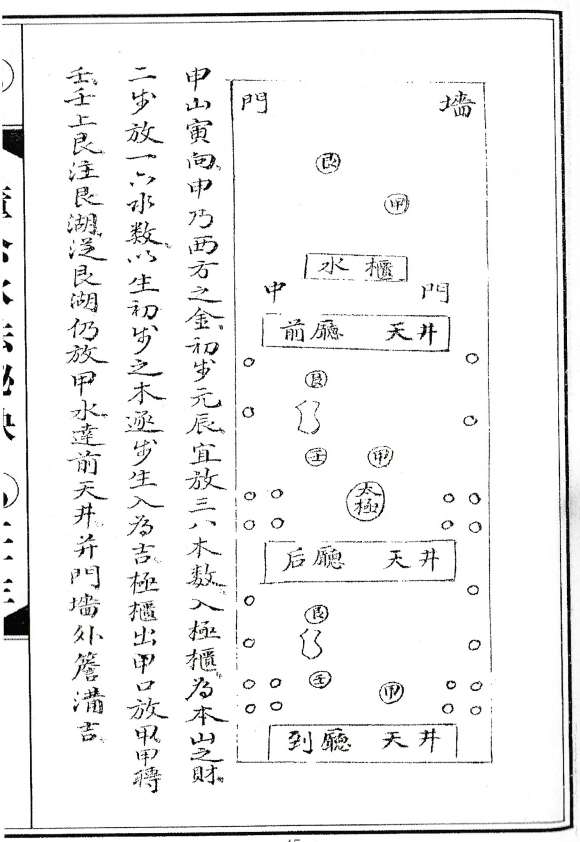 墻
門
艮
甲
水櫃
中
門
前廳 天井
艮
壬
甲
太極
后廳 天井
艮
壬
甲
到廳 天井
申山寅向。申乃西方之金。初步元辰。宜放三八木数。入極櫃。為本山之財。
二步放一六水数。以生初步之木。逐步生入為吉。極櫃出甲口放甲。甲轉
壬。壬上艮。注艮湖。從艮湖仍放甲水。達前天井。并門墻外簷溝吉。